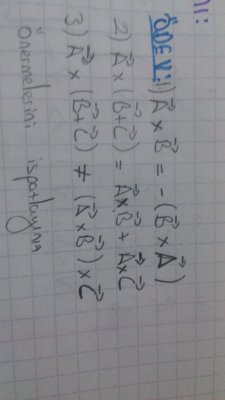 ÖDEV: 1) A⃗ × B⃗ = - (B⃗ × A⃗)
2) A⃗ × (B⃗ + C⃗) = A⃗ × B⃗ + A⃗ × C⃗
3) A⃗ × (B⃗ + C⃗) ≠ (A⃗ × B⃗) × C⃗
önermelerini ispatlayınız